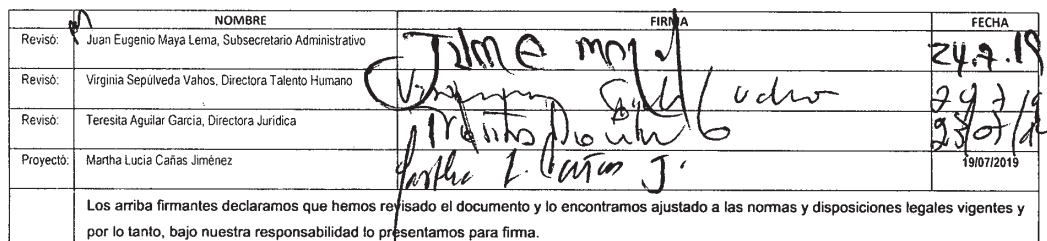 NOMBRE FIRMA FECHA
Revisó: Juan Eugenio Maya Lema, Subsecretario Administrativo 24.7.19
Revisó: Virginia Sepúlveda Vahos, Directora Talento Humano
Revisó: Teresita Aguilar García, Directora Jurídica
Proyectó: Martha Lucía Cañas Jiménez Martha L. Cañas J. 19/07/2019
Los arriba firmantes declaramos que hemos revisado el documento y lo encontramos ajustado a las normas y disposiciones legales vigentes y
por lo tanto, bajo nuestra responsabilidad lo presentamos para firma.